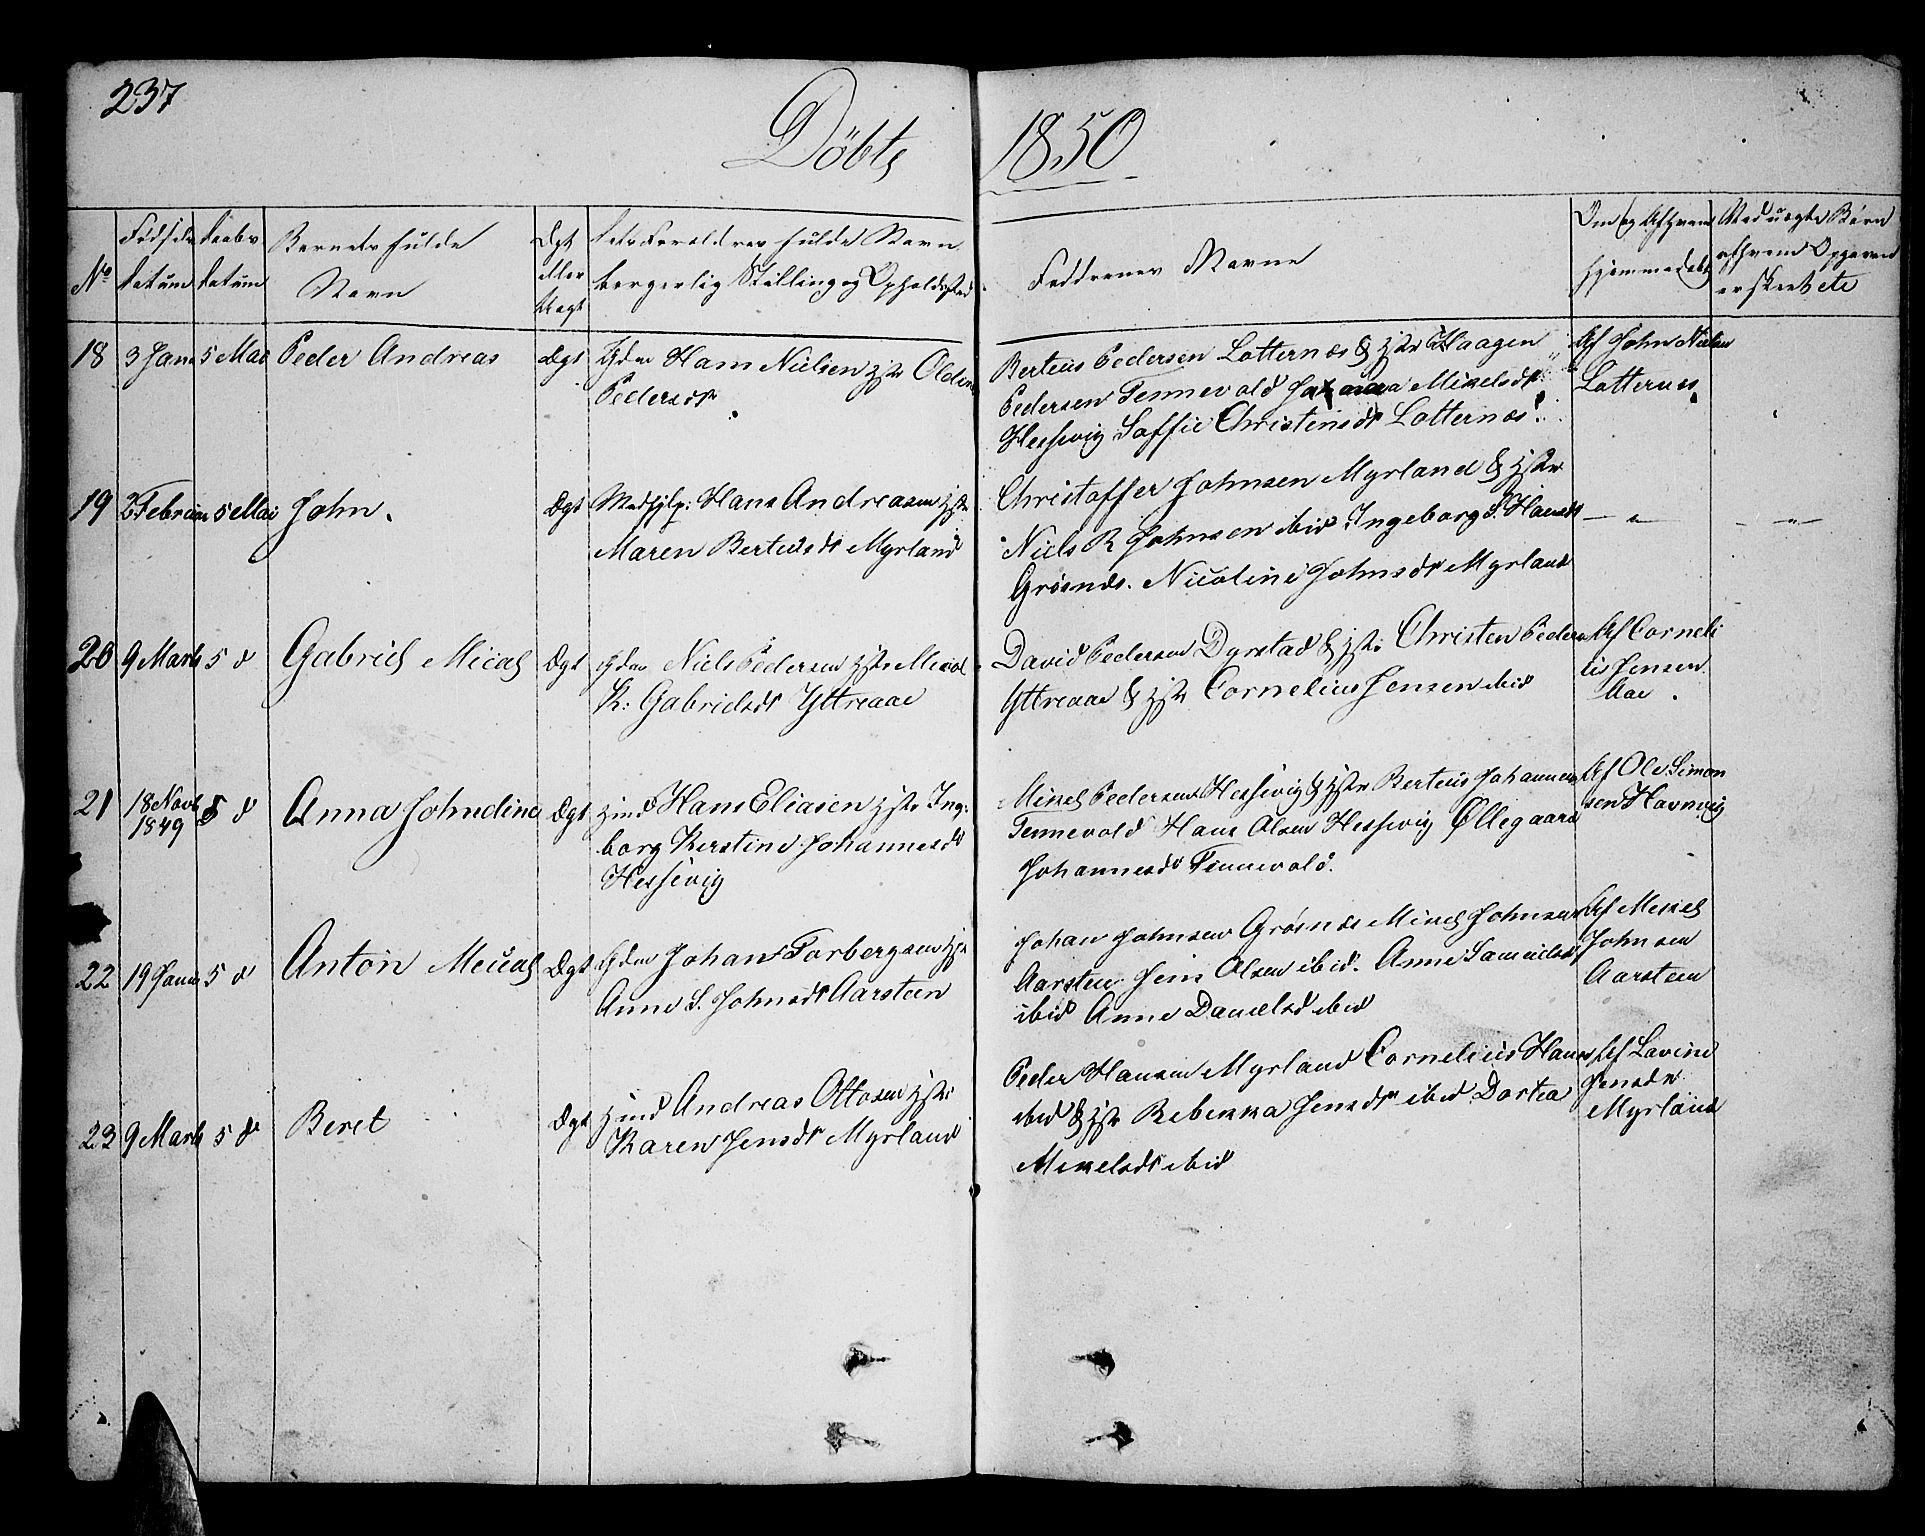 237
Döbte 1850
No
Fødsels
datum
Daabs
datum
Barnets fulde
Navn
Ægt
eller
Uægt
dets Forældres fulde Navn
borgerlig Stilling og Opholdssted
Faddernes Navne
Om og Af hvem
hjemmedøbt
Ved uægte Børn
af hvem Opgaven
er skeet etc
18 3 Janr 5 Mai Peder Andreas Ægt Gdm Hans Nielsen Hstr Oldine
Pedersdr
Berteus Pedersen Lotternæs & Hstr Haagen
Pedersen Tennevold Mikelsdr
Hessevig Soffie Christensdr Lotternæs
Af John Nielsen
Lotternæs
19 2 Februar 5 Mai John. Ægt Medhjlp: Hans Andreasen Hstr
Maren Berteusdr Myrland
Christoffer Johnsen Myrland & Hstr
Niels R Johnsen ibid Ingeborg S. Hansdr
Grøsnæs. Nicoline Johnsdr Myrland
— " — — " —
20 9 Marts 5 d Gabriel Micael Ægt Gdm Niels Pedersen Hstr
K: Gabrielsdr Yttreaae
David Pedersen Dyrstad & Hstr Christen Pedersen
Yttreaae & Hstr Cornelius Jensen ibid
Af Corneli
us Jensen
Aae.
21 18 Novb
1849 5 d Anna Johndine Ægt Hans Eliasen Hstr Inge
borg Kerstine Johannesdr
Hessevig
Mikel Pedersen Hessevig & Hstr Berteus Johannesen
Tennevold Hans Olsen Hessevig Øllegaard
Johannesdr Tennevold.
Af Ole Simon
sen Havnvig
22 19 Janr 5 d Anton Mecael Ægt Gdm Johan Torbergsen Hstr
Anne S. Johnsdr Aarsteen
Johan Johnsen Grøsnæs Mikel Johnsen
Aarsteen Jens Olsen ibid. Anne Samuelsdr
ibid Anne Danielsd ibid
Af Mekel
Johnsen
Aarsteen
23 9 Marts 5 d Beret Ægt Andreas Ottosen Hstr
Karen Jensdr Myrland
Peder Hansen Myrland Cornelius Hansen
ibid & Hstr Rebekka Jensdr ibid Dortea
Mekelsdr ibid
Af Lavine
Jensdr
Myrland